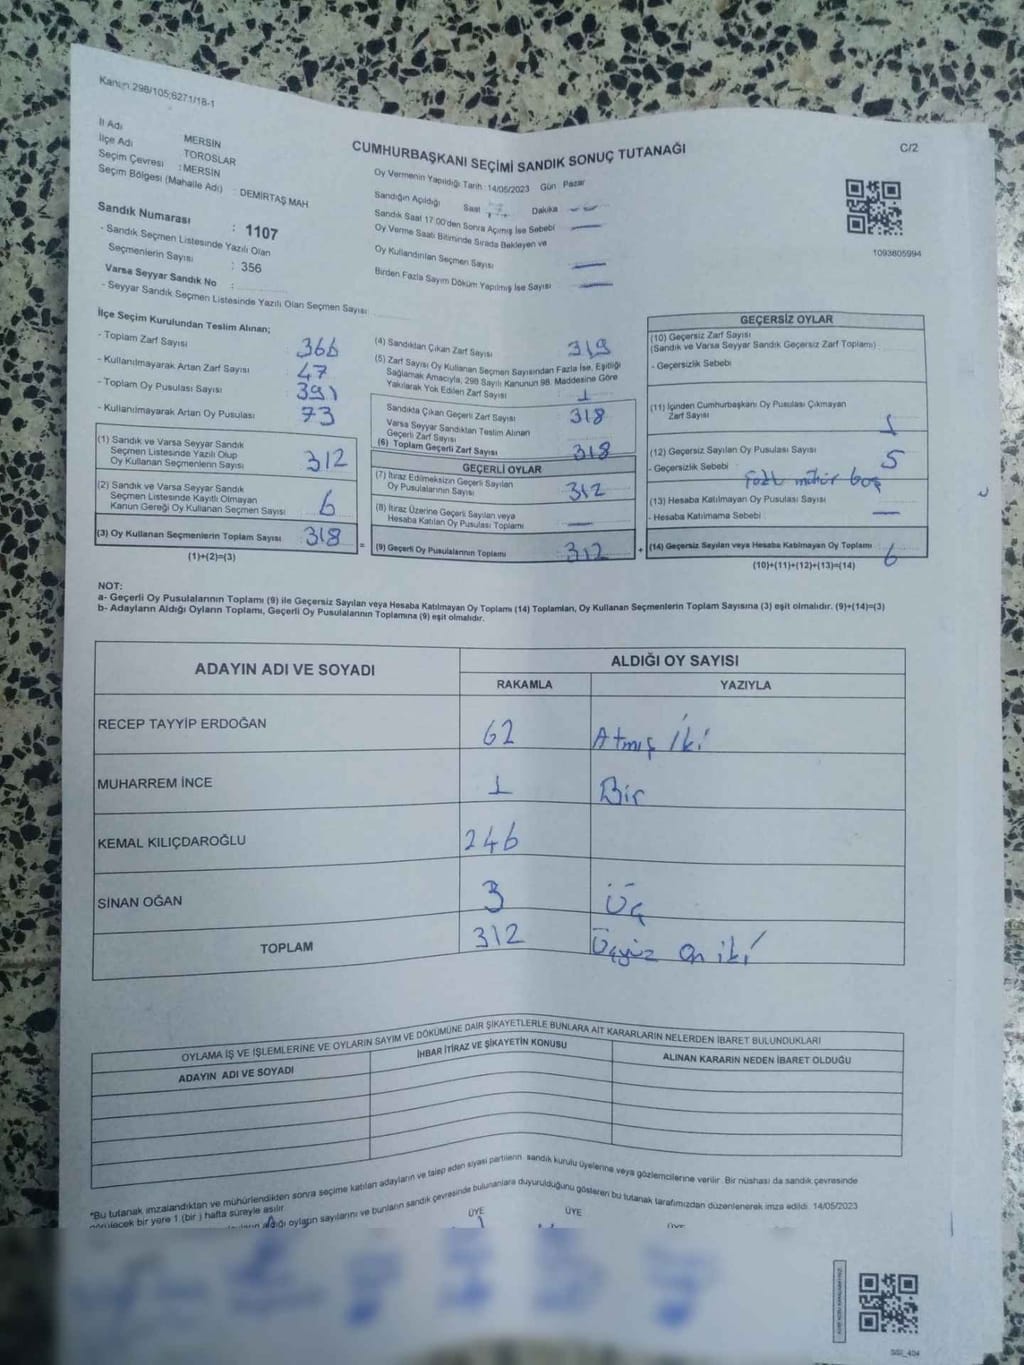 Kanun 298/105;6271/18-1
CUMHURBAŞKANI SEÇİMİ SANDIK SONUÇ TUTANAĞI
C/2
İl Adı MERSİN
İlçe Adı TOROSLAR
Seçim Çevresi : MERSİN
Seçim Bölgesi (Mahalle Adı) : DEMİRTAŞ MAH
Sandık Numarası : 1107
- Sandık Seçmen Listesinde Yazılı Olan
Seçmenlerin Sayısı : 356
Varsa Seyyar Sandık No :
- Seyyar Sandık Seçmen Listesinde Yazılı Olan Seçmen Sayısı:
Oy Vermenin Yapıldığı Tarih : 14/05/2023 Gün Pazar
Sandığın Açıldığı Saat Dakika
Sandık Saat 17.00'den Sonra Açımış İse Sebebi
Oy Verme Saati Bitiminde Sırada Bekleyen ve
Oy Kullandırılan Seçmen Sayısı
Birden Fazla Sayım Döküm Yapılmış İse Sayısı
1093605994
İlçe Seçim Kurulundan Teslim Alınan;
- Toplam Zarf Sayısı 366
- Kullanılmayarak Artan Zarf Sayısı 47
- Toplam Oy Pusulası Sayısı 391
- Kullanılmayarak Artan Oy Pusulası 73
(1) Sandık ve Varsa Seyyar Sandık
Seçmen Listesinde Yazılı Olup
Oy Kullanan Seçmenlerin Sayısı 312
(2) Sandık ve Varsa Seyyar Sandık
Seçmen Listesinde Kayıtlı Olmayan
Kanun Gereği Oy Kullanan Seçmen Sayısı 6
(3) Oy Kullanan Seçmenlerin Toplam Sayısı 318
(1)+(2)=(3)
(4) Sandıktan Çıkan Zarf Sayısı 319
(5) Zarf Sayısı Oy Kullanan Seçmen Sayısından Fazla İse, Eşitliği
Sağlamak Amacıyla, 298 Sayılı Kanunun 98. Maddesine Göre
Yakılarak Yok Edilen Zarf Sayısı 1
Sandıkta Çıkan Geçerli Zarf Sayısı 318
Varsa Seyyar Sandıktan Teslim Alınan
Geçerli Zarf Sayısı
(6) Toplam Geçerli Zarf Sayısı 318
GEÇERLİ OYLAR
(7) İtiraz Edilmeksizin Geçerli Sayılan
Oy Pusulalarının Sayısı 312
(8) İtiraz Üzerine Geçerli Sayılan veya
Hesaba Katılan Oy Pusulası Toplamı —
(9) Geçerli Oy Pusulalarının Toplamı 312
GEÇERSİZ OYLAR
(10) Geçersiz Zarf Sayısı
(Sandık ve Varsa Seyyar Sandık Geçersiz Zarf Toplamı)
- Geçersizlik Sebebi
(11) İçinden Cumhurbaşkanı Oy Pusulası Çıkmayan
Zarf Sayısı 1
(12) Geçersiz Sayılan Oy Pusulası Sayısı 5
- Geçersizlik Sebebi mühür boş
(13) Hesaba Katılmayan Oy Pusulası Sayısı —
- Hesaba Katılmama Sebebi
(14) Geçersiz Sayılan veya Hesaba Katılmayan Oy Toplamı 6
(10)+(11)+(12)+(13)=(14)
NOT:
a- Geçerli Oy Pusulalarının Toplamı (9) ile Geçersiz Sayılan veya Hesaba Katılmayan Oy Toplamı (14) Toplamları, Oy Kullanan Seçmenlerin Toplam Sayısına (3) eşit olmalıdır. (9)+(14)=(3)
b- Adayların Aldığı Oyların Toplamı, Geçerli Oy Pusulalarının Toplamına (9) eşit olmalıdır.
ADAYIN ADI VE SOYADI ALDIĞI OY SAYISI
RAKAMLA YAZIYLA
RECEP TAYYİP ERDOĞAN 62 Atmış İki
MUHARREM İNCE 1 Bir
KEMAL KILIÇDAROĞLU 246
SİNAN OĞAN 3 Üç
TOPLAM 312 Üçyüz on iki
OYLAMA İŞ VE İŞLEMLERİNE VE OYLARIN SAYIM VE DÖKÜMÜNE DAİR ŞİKAYETLERLE BUNLARA AİT KARARLARIN NELERDEN İBARET BULUNDUKLARI
ADAYIN ADI VE SOYADI İHBAR İTİRAZ VE ŞİKAYETİN KONUSU ALINAN KARARIN NEDEN İBARET OLDUĞU
*Bu tutanak imzalandıktan ve mühürlendikten sonra seçime katılan adayların ve talep eden siyasi partilerin sandık kurulu üyelerine veya gözlemcilerine verilir. Bir nüshası da sandık çevresinde
görülecek bir yere 1 (bir) hafta süreyle asılır
aldığı oyların sayılarını ve bunların sandık çevresinde bulunanlara duyurulduğunu gösteren bu tutanak tarafımızdan düzenlenerek imza edildi. 14/05/2023
ÜYE ÜYE ÜYE